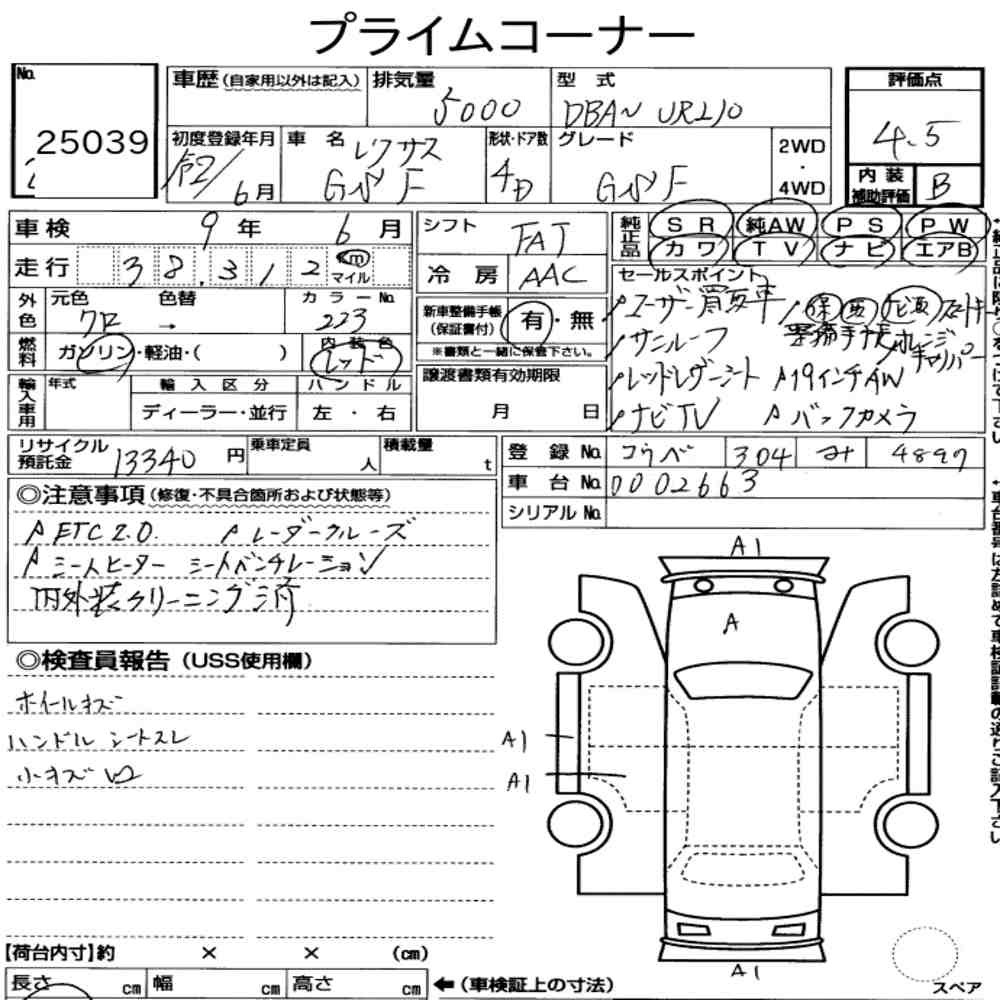 プライムコーナー
No.
25039
車歴 (自家用以外は記入)
排気量
5000
型 式
DBA URL10
評価点
4.5
内装
補助評価
B
初度登録年月
令2/6月
車 名
レクサス
GS F
形状・ドア数
4D
グレード
GS F
2WD
・
4WD
車検 9年 6月
走行 38,312 km
マイル
シフト
FAT
冷 房 AAC
純正品
SR 純AW PS PW
カワ TV ナビ エアB
セールスポイント
ユーザー買取車
サンルーフ
整備手帳
オレンジ
キャリパー
レッドレザーシート 19インチAW
ナビTV バックカメラ
外色
元色 色替 カラーNo.
クロ → 223
燃料
ガソリン・軽油・( )
内装色
レッド
新車整備手帳
(保証書付)
有・無
※書類と一緒に保管下さい。
輸入車用
年式
輸入区分
ハンドル
ディーラー・並行
左・右
譲渡書類有効期限
月 日
リサイクル
預託金
13340円
乗車定員
人
積載量
t
登 録 No. コウベ 304 4897
車 台 No. 0002663
シリアル No.
◎注意事項 (修復・不具合箇所および状態等)
ETC2.0. レーダークルーズ
シートヒーター シートベンチレーション
内外装クリーニング済
◎検査員報告 (USS使用欄)
ホイールキズ
ハンドル シートスレ
小キズ
A1
A
A1
A1
A1
スペア
【荷台内寸】約 × × (cm)
長さ cm 幅 cm 高さ cm
←(車検証上の寸法)